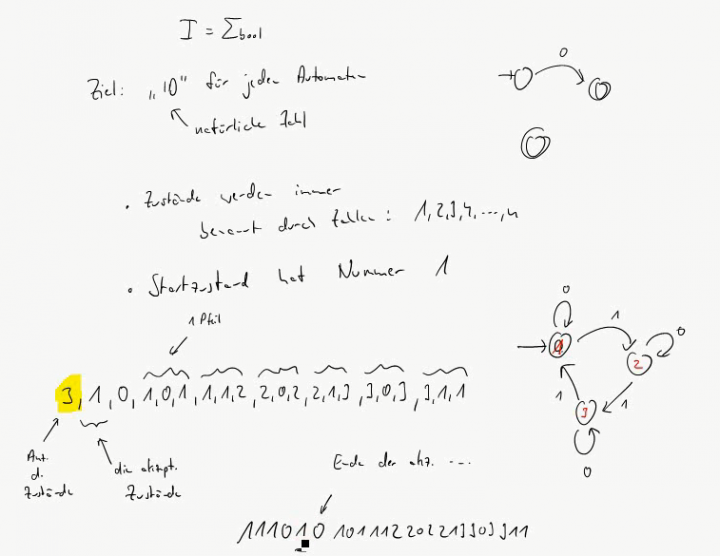 I = Σbool
Ziel: "10" für jeden Automaten
natürliche Zahl
0
• Zustände werden immer
benannt durch Zahlen: 1,2,3,4,...,n
• Startzustand hat Nummer 1
1 Pfeil
3,1,0,1,0,1,1,1,2,2,0,2,2,1,3,3,0,3,3,1,1
Anz.
d.
Zustände
die akzept.
Zustände
Ende der akz. ...
111010 101112202213303311
0
1
0
2
1
1
3
0